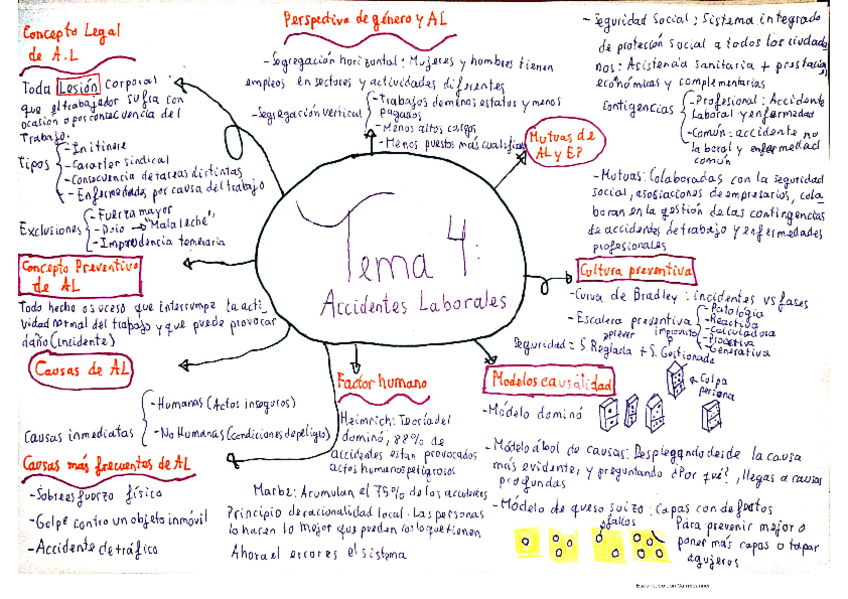 Concepto Legal
de A.L
Toda Lesión Corporal
que el trabajador sufra con
ocasión o por consecuencia del
Trabajo.
Tipos
- In itinere
- Caracter sindical
- Consecuencia de tareas distintas
- Enfermedades por causa del trabajo
Exclusiones
- Fuerza mayor
- Dolo → "Mala leche",
- Imprudencia temeraria
Perspectiva de género y AL
- Segregación horizontal: Mujeres y hombres tienen
empleos en sectores y actividades diferentes
- Segregación vertical
- Trabajos de menos estatus y menos
pagados
- Menos altos cargos
- Menos puestos más cualific
Mutuas de
AL y EP
- Seguridad Social: Sistema integrado
de protección social a todos los ciudada
nos: Asistencia sanitaria + prestacion
económicas y complementarias
Contigencias
- Profesional: Accidente
Laboral y enfermedad
- Común: accidente no
laboral y enfermedad
común
- Mutuas: Colaboradas con la seguridad
social, asosiaciones de empresarios, cola
boran en la gestión de las contingencias
de accidentes de trabajo y enfermedades
profesionales
Tema 4:
Accidentes Laborales
Concepto Preventivo
de AL
Todo hecho o suceso que interrumpe la acti-
vidad normal del trabajo y que puede provocar
daño (incidente)
Cultura preventiva
- Curva de Bradley: incidentes vs fases
- Escalera preventiva
- Patologia
- Reactiva
- Calculadora
- Proactiva
- Generativa
prever imprevisto
Seguridad = S. Reglada + S. Gestionada
Causas de AL
Causas inmediatas
- Humanas (Actos inseguros)
- No Humanas (condiciones de peligro)
Factor humano
Heinrich: Teoría del
dominó, 88% de
accidentes estan provocados
actos humanos peligrosos
Marbe: Acumulan el 75% de los accidentes
Principio de racionalidad local: Las personas
lo hacen lo mejor que pueden con lo que tienen
Ahora el error es el sistema
Modelos causalidad
- Módelo dominó
Culpa
persona
- Módelo árbol de causas: Desplegando desde la causa
más evidente, y preguntando ¿Por qué?, llegas a causas
profundas
- Módelo de queso suizo: Capas con defectos
fallos
Para prevenir mejor o
poner más capas o tapar
agujeros
Causas más frecuentes de AL
- Sobreesfuerzo físico
- Golpe contra un objeto inmóvil
- Accidente de tráfico
Escaneado con CamScanner